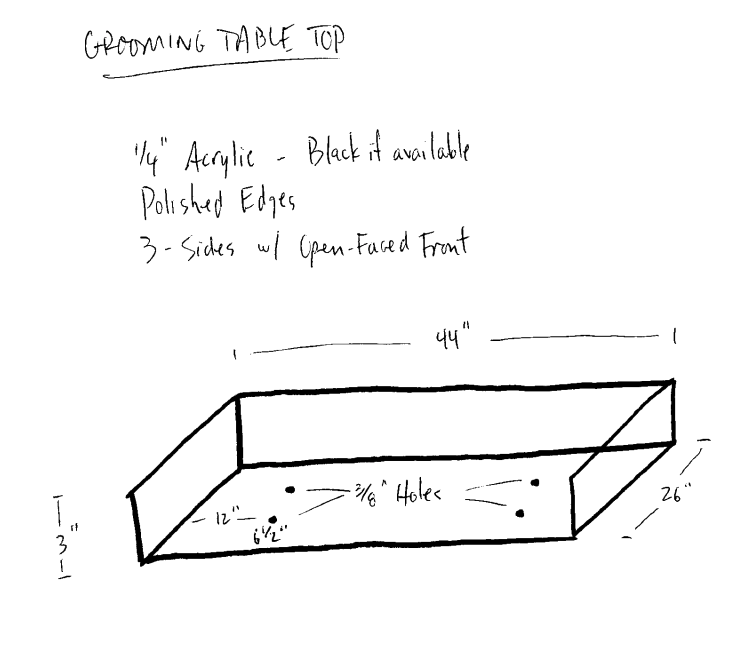 GROOMING TABLE TOP
1/4" Acrylic - Black if available
Polished Edges
3-Sides w/ Open-Faced Front
44"
3/8" Holes
26"
12"
6 1/2"
3"